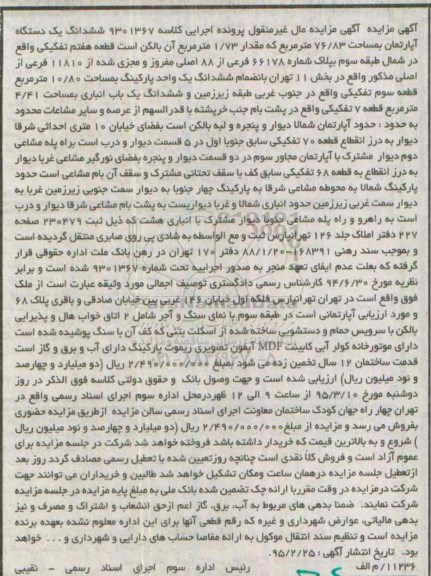 آگهی مزایده آگهی مزایده مال غیرمنقول پرونده اجرایی کلاسه ۹۳۰۱۳۶۷ ششدانگ یک دستگاه
آپارتمان بمساحت ۷۶/۸۳ مترمربع که مقدار ۱/۷۳ مترمربع آن بالکن است قطعه هفتم تفکیکی واقع
در شمال طبقه سوم بپلاک شماره ۶۶۱۷۸ فرعی از ۸۸ اصلی مفروز و مجزی شده از ۱۱۸۱۰ فرعی از
اصلی مذکور واقع در بخش ۱۱ تهران بانضمام ششدانگ یک واحد پارکینگ بمساحت ۱۰/۸۰ مترمربع
قطعه سوم تفکیکی واقع در جنوب غربی طبقه زیرزمین و ششدانگ یک باب انباری بمساحت ۴/۴۱
مترمربع قطعه ۷ تفکیکی واقع در پشت بام جنب خرپشته با قدرالسهم از عرصه و سایر مشاعات محدود
به حدود : حدود آپارتمان شمالا دیوار و پنجره و لبه بالکن است بفضای خیابان ۱۰ متری احداثی شرقا
دیوار به درز انقطاع قطعه ۷۰ تفکیکی سابق جنوبا اول در ۵ قسمت دیوار و درب است براه پله مشاعی
دوم دیوار مشترک با آپارتمان مجاور سوم در دو قسمت دیوار و پنجره بفضای نورگیر مشاعی غربا دیوار
به درز انقطاع به قطعه ۶۸ تفکیکی سابق کف با سقف تحتانی مشترک و سقف آن بام مشاعی است حدود
پارکینگ شمالا به محوطه مشاعی شرقا به پارکینگ چهار جنوبا به دیوار سمت جنوبی زیرزمین غربا به
دیوار سمت غربی زیرزمین حدود انباری شمالا و غربا دیواریست به پشت بام مشاعی شرقا دیوار و درب
است به راهرو و راه پله مشاعی جنوبا دیوار مشترک با انباری هشت که ذیل ثبت ۲۳۰۴۷۹ صفحه
۲۲۷ دفتر املاک جلد ۱۲۶ تهرانپارس ثبت و مع الواسطه به شادی پی روی صابری منتقل گردیده است
و بموجب سند رهنی ۱۶۸۳۹۱-۸۸/۱/۲۰ دفتر ۱۷۰ تهران در رهن بانک ملت اداره حقوقی قرار
گرفته که بعلت عدم ایفای تعهد منجر به صدور اجراییه تحت شماره ۹۳۰۱۳۶۷ شده است و برابر
نظریه مورخ ۹۴/۶/۳۰ کارشناس رسمی دادگستری توصیف اجمالی مورد وثیقه عبارت است از ملک
فوق واقع است در تهران تهرانپارس فلکه اول خیابان ۱۴۶ غربی بین خیابان صادقی و باقری پلاک ۶۸
و مورد ارزیابی آپارتمانی است در طبقه سوم با نمای سنگ و آجر شامل ۲ اتاق خواب هال و پذیرایی
بالکن با سرویس حمام و دستشویی ساخته شده از اسکلت بتنی که کف آن با سنگ پوشیده شده است
دارای موتورخانه کولر آبی کابینت MDF آیفون تصویری ریموت پارکینگ دارای آب و برق و گاز است
قدمت ساختمان ۱۲ سال تخمین زده می شود بمبلغ ۲/۴۹۰/۰۰۰/۰۰۰ ریال (دو میلیارد و چهارصد
و نود میلیون ریال) ارزیابی شده است و جهت وصول بانک و حقوق دولتی کلاسه فوق الذکر در روز
دوشنبه مورخ ۹۵/۳/۱۰ از ساعت ۹ الی ۱۲ ظهردرمحل اداره سوم اجرای اسناد رسمی واقع در
تهران چهار راه جهان کودک ساختمان معاونت اجرای اسناد رسمی سالن مزایده ازطریق مزایده حضوری
بفروش می رسد و مزایده از مبلغ ۲/۴۹۰/۰۰۰/۰۰۰ ریال (دو میلیارد و چهارصد و نود میلیون ریال
) شروع و به بالاترین قیمت که خریدار داشته باشد فروخته خواهد شد شرکت در جلسه مزایده برای
عموم آزاد است و فروش کلا نقدی است چنانچه روزتعیین شده با تعطیل رسمی مصادف گردد روز بعد
ازتعطیل جلسه مزایده درهمان ساعت ومکان تشکیل خواهد شد طالبین و خریداران می توانند جهت
شرکت درمزایده در وقت مقرربا ارائه چک تضمین شده بانک ملی به مبلغ پایه مزایده در جلسه مزایده
شرکت نمایند. ضمنا بدهی های مربوط به آب، برق، گاز اعم ازحق انشعاب و اشتراک و مصرف و نیز
بدهی مالیاتی، عوارض شهرداری و غیره که رقم قطعی آنها برای این اداره معلوم نشده بعهده برنده
مزایده است و تنظیم سند انتقال موکول به ارائه مفاصا حساب های دارایی و شهرداری و ... خواهد
بود. تاریخ انتشار آگهی : ۹۵/۲/۲۵.
۱۱۲۳۶/م الف رئیس اداره سوم اجرای اسناد رسمی - نقیبی